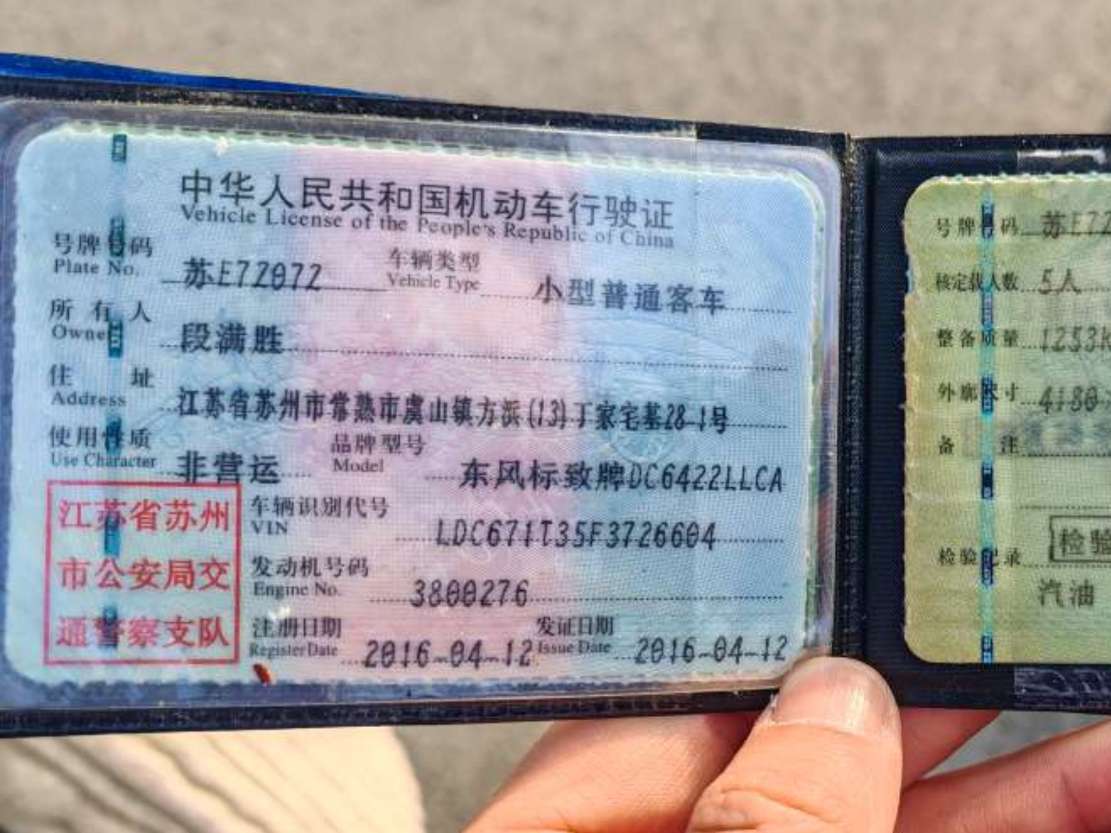 中华人民共和国机动车行驶证
Vehicle License of the People's Republic of China
号牌号码 苏E72072 车辆类型 小型普通客车
Plate No. Vehicle Type
所有人 段满胜
Owner
住址 江苏省苏州市常熟市虞山镇方浜(13)丁家宅基28-1号
Address
使用性质 非营运 品牌型号 东风标致牌DC6422LLCA
Use Character Model
江苏省苏州
市公安局交
通警察支队
车辆识别代号 LDC671T35F3726604
VIN
发动机号码 3800276
Engine No.
注册日期 2016-04-12 发证日期 2016-04-12
Register Date Issue Date
号牌号码 苏E72
核定载人数 5人
整备质量 1253K
外廓尺寸 4180
备注
检验记录 检验
汽油